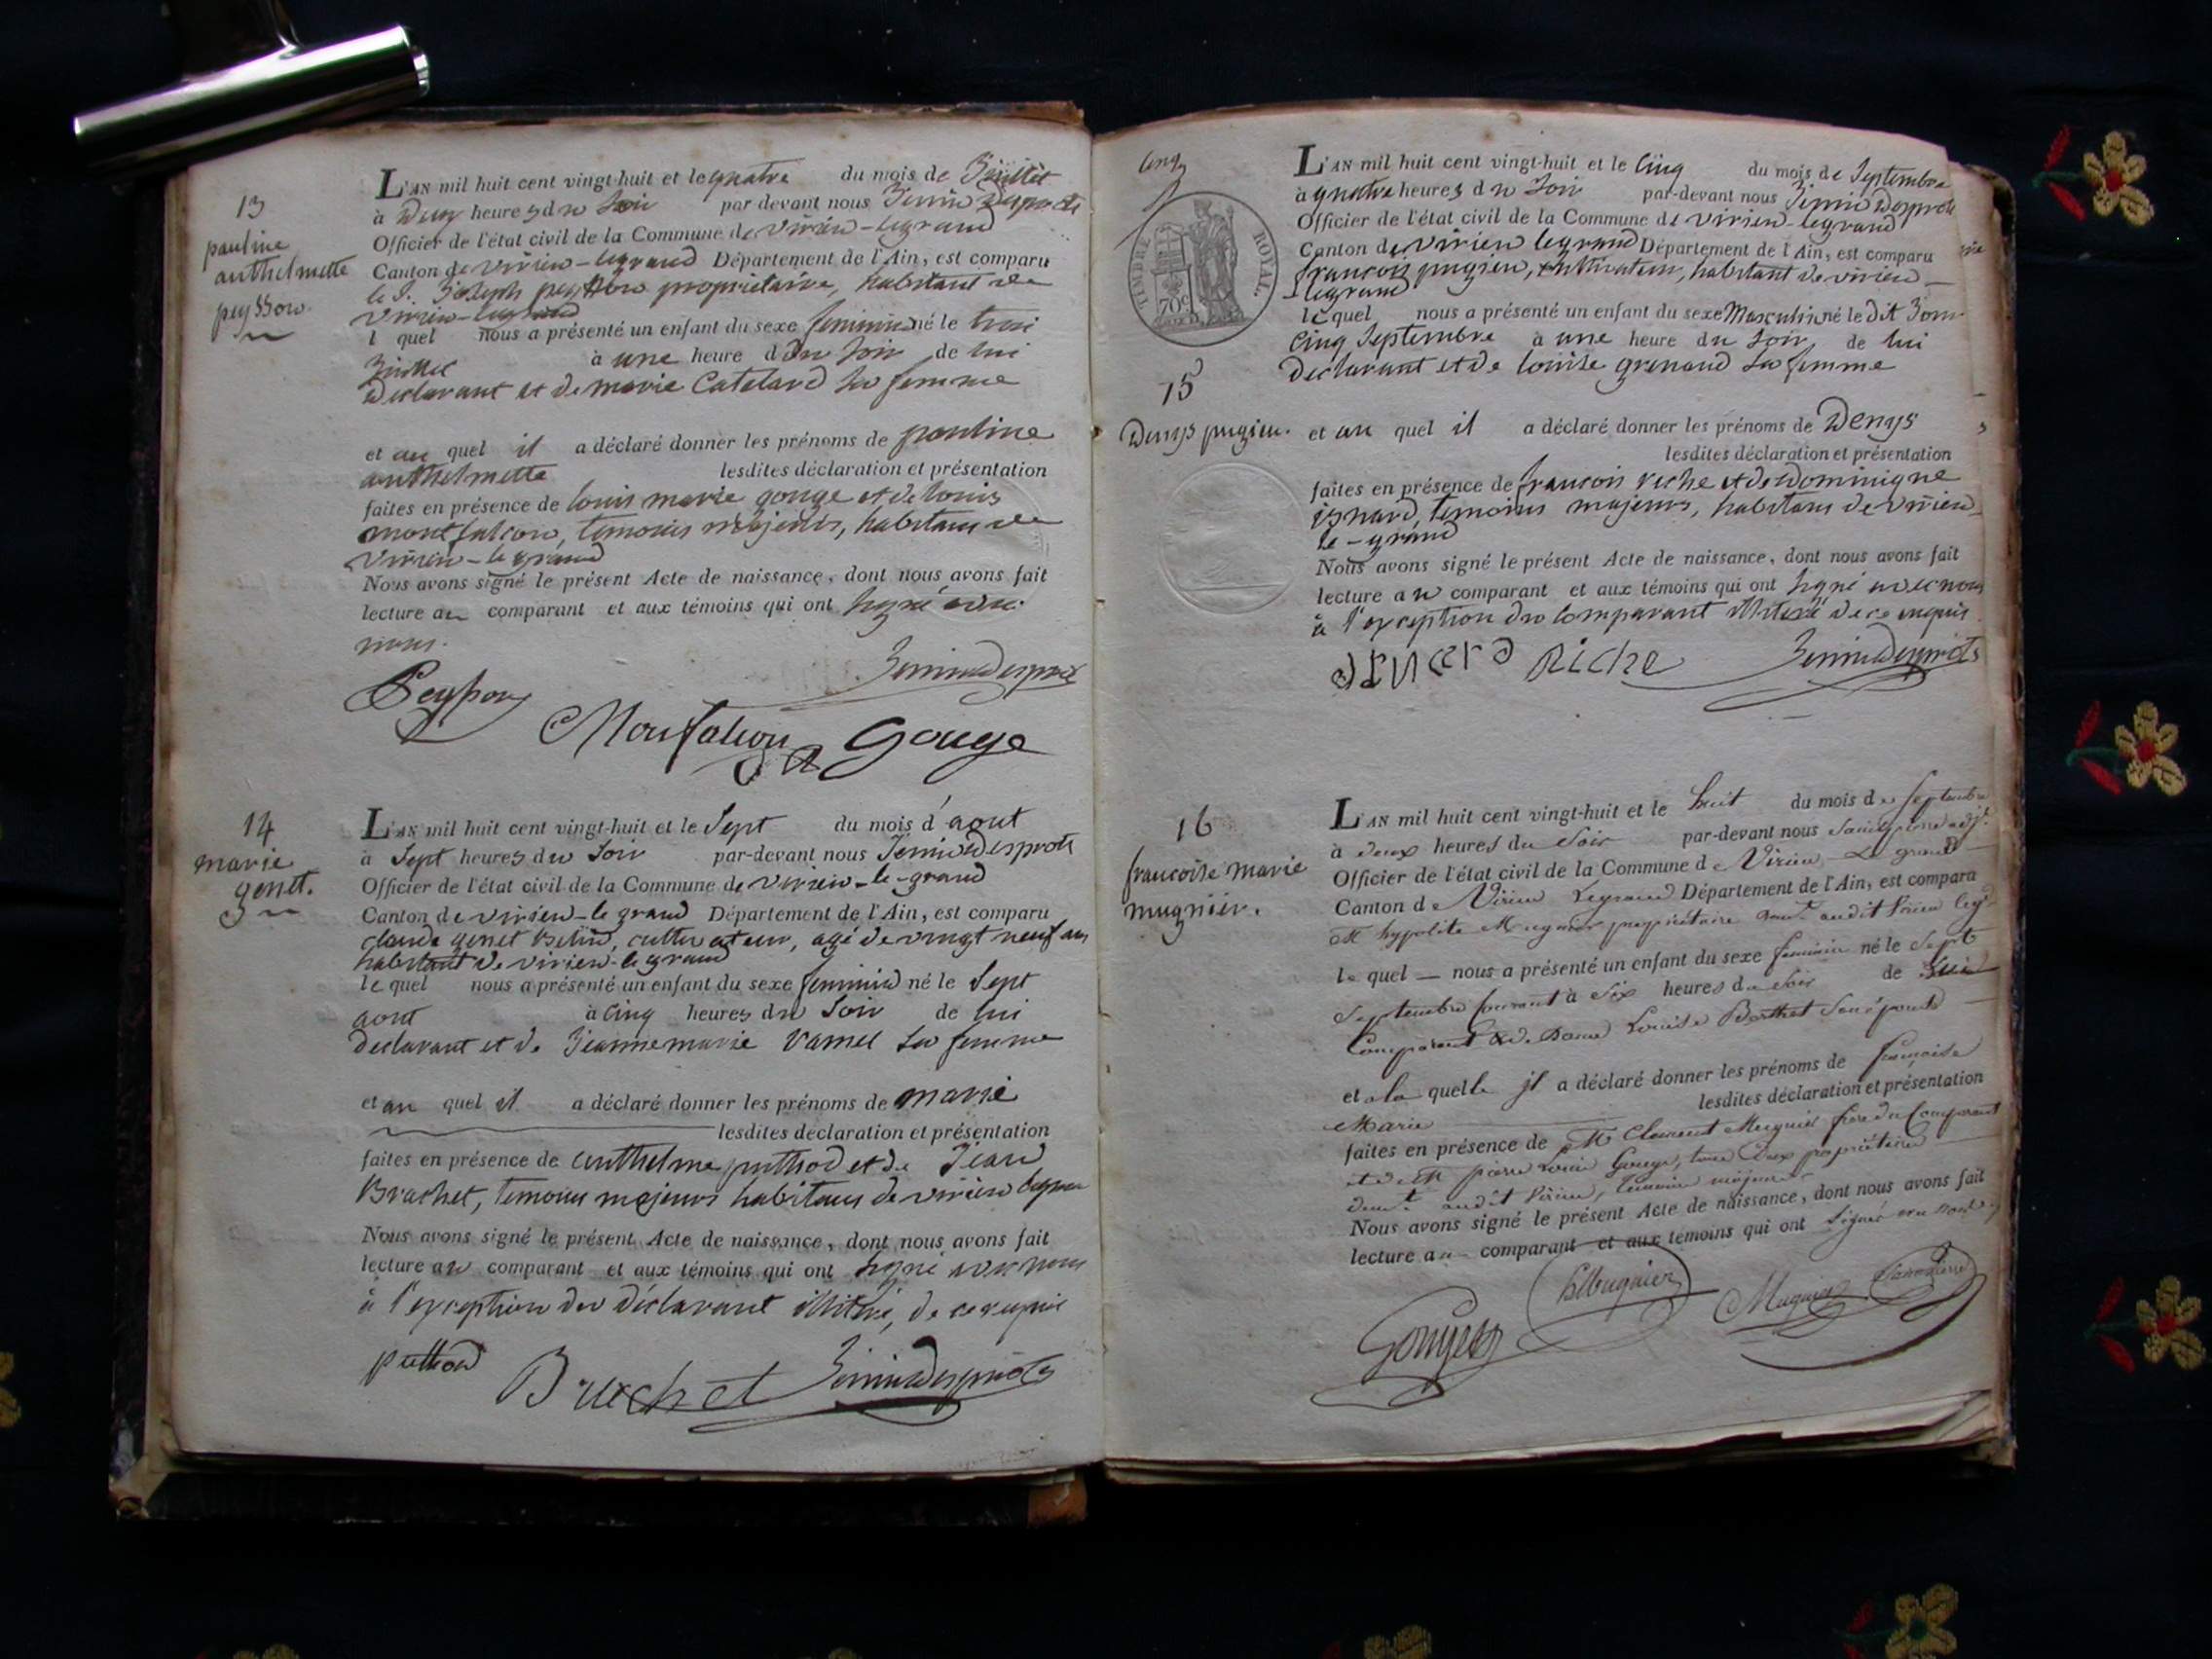 13
pauline
anthelmette
peysson.
L'AN mil huit cent vingt-huit et le quatre du mois de Juillet
à deux heures du Soir par devant nous Jenin Desprots
Officier de l'état civil de la Commune de virieu-legrand
Canton de virieu-legrand Département de l'Ain, est comparu
le S. Joseph peysson propriétaire, habitant de
virieu-legrand
l quel nous a présenté un enfant du sexe feminin né le trois
Juillet à une heure du Soir de lui
declarant et de marie Catelard sa femme
et au quel il a déclaré donner les prénoms de pauline
anthelmette lesdites déclaration et présentation
faites en présence de louis marie gouge et de louis
montfalcon, temoins majeurs, habitans de
virieu-le grand
Nous avons signé le présent Acte de naissance, dont nous avons fait
lecture au comparant et aux témoins qui ont signé avec
nous.
Jenin Desprots
Peysson
Monfalcon Gouge
14
marie
genet.
L'AN mil huit cent vingt-huit et le Sept du mois d'aout
à Sept heures du Soir par-devant nous Jenin Desprots
Officier de l'état civil de la Commune de virieu-le-grand
Canton de virieu-le grand Département de l'Ain, est comparu
claude genet cultivateur, agé de vingt neuf ans
habitant de virieu-le grand
le quel nous a présenté un enfant du sexe feminin né le Sept
aout à cinq heures du Soir de lui
declarant et de Jeanne marie sa femme
et au quel il a déclaré donner les prénoms de marie
lesdites déclaration et présentation
faites en présence de anthelme puthod et de Jean
Brachet, temoins majeurs habitans de virieu legran
Nous avons signé le présent Acte de naissance, dont nous avons fait
lecture au comparant et aux témoins qui ont signé avec nous
à l'exception du déclarant illitéré, de ce requis
puthod Brachet Jenin Desprots
cinq
TIMBRE ROYAL.
70c
15
Denys pugieu.
L'AN mil huit cent vingt-huit et le Cinq du mois de Septembre
à quatre heures du Soir par-devant nous Jenin Desprots
Officier de l'état civil de la Commune de virieu-legrand
Canton de virieu legrand Département de l'Ain, est comparu
francois pugieu, cultivateur, habitant de virieu-
legrand
le quel nous a présenté un enfant du sexe Masculin né le dit Jour
Cinq Septembre à une heure du Soir de lui
declarant et de louise grenaud sa femme
et au quel il a déclaré donner les prénoms de Denys
lesdites déclaration et présentation
faites en présence de francois riche et de dominique
isnard, temoins majeurs, habitans de virieu-
le-grand
Nous avons signé le présent Acte de naissance, dont nous avons fait
lecture au comparant et aux témoins qui ont signé avec nous
à l'exception du comparant illitéré de ce requis
Riche Jenin Desprots
16
francoise marie
mugnier.
L'AN mil huit cent vingt-huit et le huit du mois de Septembre
à deux heures du Soir par-devant nous adjt.
Officier de l'état civil de la Commune de Virieu-Le grand
Canton de Virieu Legrand Département de l'Ain, est comparu
M hypolite Mugnier propriétaire demt. audit Virieu legd
le quel nous a présenté un enfant du sexe feminin né le Sept
Septembre courant à Six heures du Soir de lui
Comparant & de Dame Louise Berthet Son épouse
et a la quelle jl a déclaré donner les prénoms de francoise
Marie lesdites déclaration et présentation
faites en présence de M Clement Mugnier frere du Comparant
et de M pierre Louis Gouge, tous deux propriétaires
demt. audit Virieu, temoins majeurs
Nous avons signé le présent Acte de naissance, dont nous avons fait
lecture au comparant et aux témoins qui ont Signé avec nous
Gouge hMugnier Mugnier